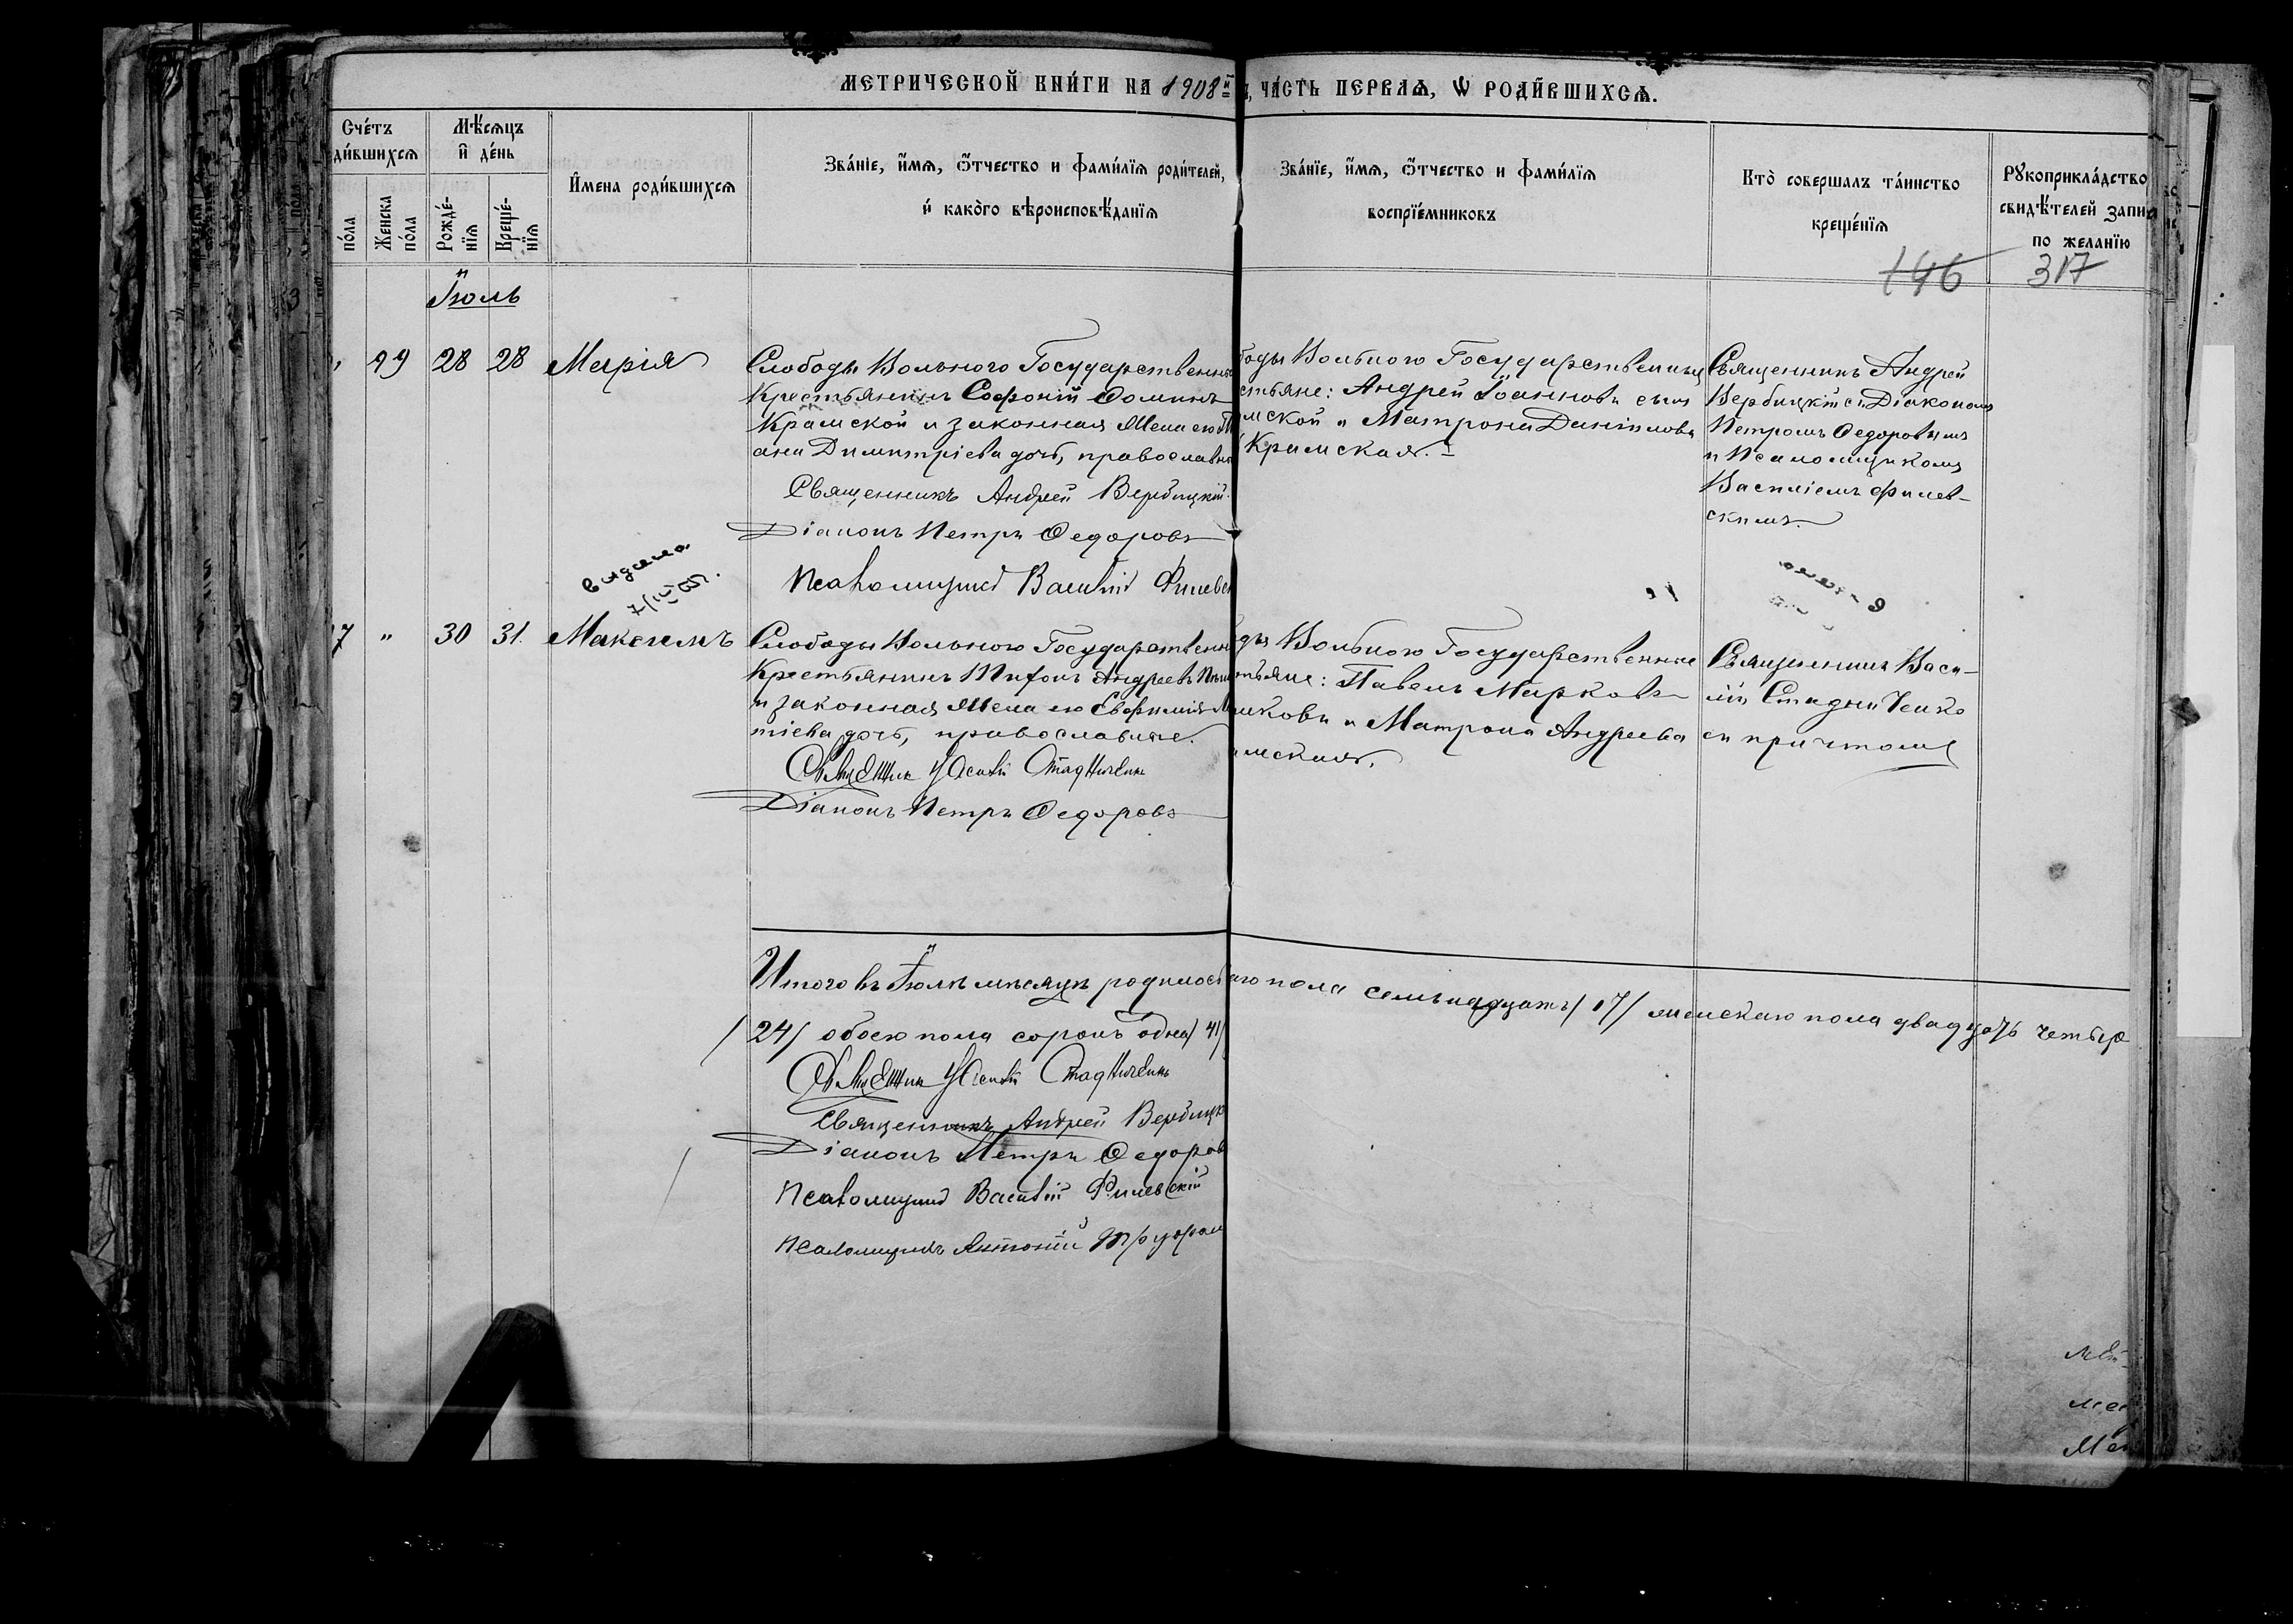 МЕТРИЧЕСКОЙ КНИ́ГИ НА 1908й, ЧА́СТЬ ПЕРВАѦ, Ѡ РОДИ́ВШИХСѦ.
Сче́тъ
ди́вшихсѧ
по́ла
Женска по́ла
Мѣ́сѧцъ и де́нь
Рожде́-нїѧ
Креще́-нїѧ
И҆мена роди́вшихсѧ
Зва́нїе, и҆́мѧ, ѻ҆́тчество и фами́лїѧ роди́телей,
и҆ како́го вѣроисповѣ́данїѧ
Зва́нїе, и҆́мѧ, ѻ҆́тчество и фами́лїѧ
воспрїе́мниковъ
Кто̀ соверша́лъ та́инство
креще́нїѧ
Рꙋкоприкла́дство
свидѣ́телей запи
по жела́нїю
146 317
Іюль
29 28 28 Марія
Слободы Вольного Государственны
Крестьянинъ Софоній Фоминъ
Крамской и законная Жена его
Димитріева дочь, православн
Священникъ Андрей Вербицкій.
Діаконъ Петръ Федоровъ
Псаломщикъ Василій Филевск
боды Вольного Государственныя
стьяне: Андрей Іоанновъ сынъ
мской и Матрона Даніилова
Крамская.
Священникъ Андрей
Вербицкій съ Діакономъ
Петромъ Федоровымъ
и Псаломщикомъ
Василіемъ Филев-
скимъ.
выдана
7 " 30 31. Максимъ
Слободы Вольного Государственн
Крестьянинъ Андреевъ
и законная Жена его Евфимія
тіева дочь, православные.
Священникъ Василій Стадниченко
Діаконъ Петръ Федоровъ
ды Вольного Государственные
стьяне: Павелъ Марковъ
и Матрона Андреева
мская.
Священникъ Васи-
лій Стадниченко
съ причтомъ
Итого въ Іюлѣ мѣсяцѣ родилось
аго пола семьнадцать /17/ женскаго пола двадцать четыре
/24/ обоего пола сорокъ одна /41/
Священникъ Василій Стадниченко
Священникъ Андрей Вербицк
Діаконъ Петръ Федоров
Псаломщикъ Василій Филевскій
Псаломщикъ Антоній